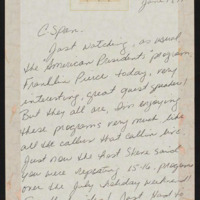 June
C Span.
Just watching, as usual
the "American President" program,
Franklin Pierce today, very
interesting, great guest speaker!
But they all are, I'm enjoying
these programs very much like
all the callers that call in live.
Just now the host Steve said
you were repeating 15-16 programs
over the July Holiday weekend!